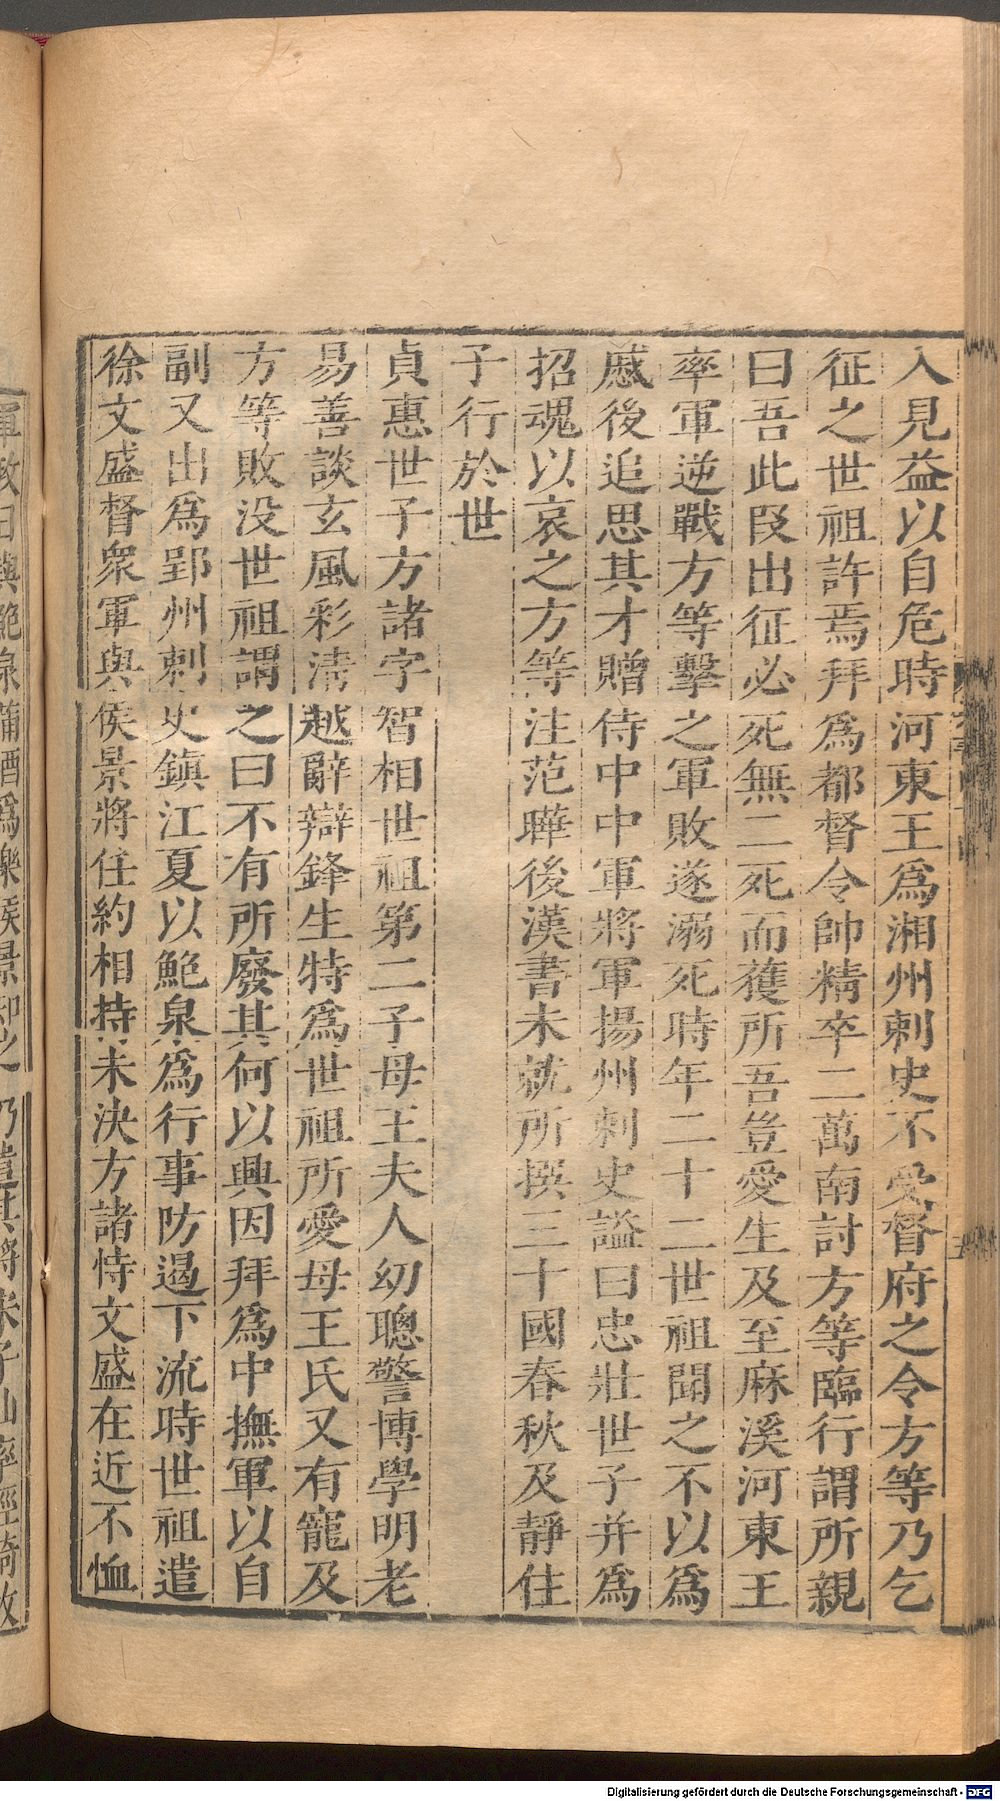 入見益以自危時河東王爲湘州刺史不受督府之令方等乃乞
征之世祖許焉拜爲都督令帥精卒二萬南討方等臨行謂所親
曰吾此段出征必死無二死而獲所吾豈愛生及至麻溪河東王
率軍逆戰方等擊之軍敗遂溺死時年二十二世祖聞之不以爲
慼後追思其才贈侍中中軍將軍揚州刺史謚曰忠壯世子并爲
招魂以哀之方等注范曄後漢書未就所撰三十國春秋及靜住
子行於世
貞惠世子方諸字智相世祖第二子母王夫人幼聰警博學明老
易善談玄風彩清越辭辯鋒生特爲世祖所愛母王氏又有寵及
方等敗没世祖謂之曰不有所廢其何以興因拜爲中撫軍以自
副又出爲郢州刺史鎮江夏以鮑泉爲行事防遏下流時世祖遣
徐文盛督衆軍與侯景將任約相持未決方諸恃文盛在近不恤
軍政日與鮑泉蒲酒爲樂侯景知之乃遣其將宋子仙率輕騎數
Digitalisierung gefördert durch die Deutsche Forschungsgemeinschaft - DFG